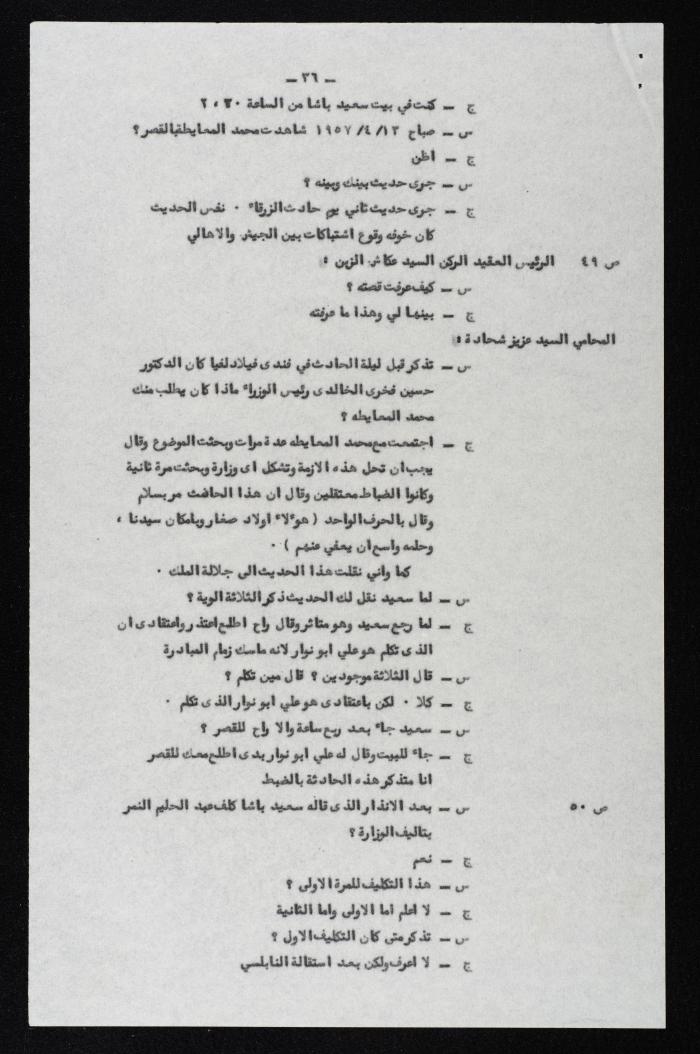 – ٣٦ –
ج – كنت في بيت سعيد باشا من الساعة ٣٠ ، ٢
س – صباح ١٣ /٤ /١٩٥٧ شاهدت محمد المعايطة بالقصر ؟
ج – اظن
س – جرى حديث بينك وبينه ؟
ج – جرى حديث ثاني يوم حادث الزرقاء ٠ نفس الحديث
كان خوفه وقوع اشتباكات بين الجيش والاهالي
ص ٤٩ الرئيس العقيد الركن السيد عكاش الزبن :
س – كيف عرفت قصته ؟
ج – بينها لي وهذا ما عرفته
المحامي السيد عزيز شحادة :
س – تذكر قبل ليلة الحادث في فندق فيلادلفيا كان الدكتور
حسين فخرى الخالدى رئيس الوزراء ماذا كان يطلب منك
محمد المعايطه ؟
ج – اجتمعت مع محمد المعايطه عدة مرات وبحثت الموضوع وقال
يجب ان تحل هذه الازمة وتشكل اى وزارة وبحثت مرة ثانية
وكانوا الضباط معتقلين وقال ان هذا الحادث مر بسلام
وقال بالحرف الواحد ( هوءلاء اولاد صغار وبامكان سيدنا ،
وحلمه واسع ان يعفي عنهم ) ٠
كما واني نقلت هذا الحديث الى جلالة الملك ٠
س – لما سعيد نقل لك الحديث ذكر الثلاثة الوية ؟
ج – لما رجع سعيد وهو متاثر وقال راح اطلع اعتذر واعتقادى ان
الذى تكلم هو علي ابو نوار لانه ماسك زمام المبادرة
س – قال الثلاثة موجودين ؟ قال مين تكلم ؟
ج – كلا ٠ لكن باعتقادى هو علي ابو نوار الذى تكلم ٠
س – سعيد جاء بعد ربع ساعة والا راح للقصر ؟
ج – جاء للبيت وقال له علي ابو نوار بدى اطلع معك للقصر
انا متذكر هذه الحادثة بالضبط
ص ٥٠ س – بعد الانذار الذى قاله سعيد باشا كلف عبد الحليم النمر
بتاليف الوزارة ؟
ج – نعم
س – هذا التكليف للمرة الاولى ؟
ج – لا اعلم اما الاولى واما الثانية
س – تذكر متى كان التكليف الاول ؟
ج – لا اعرف ولكن بعد استقالة النابلسي